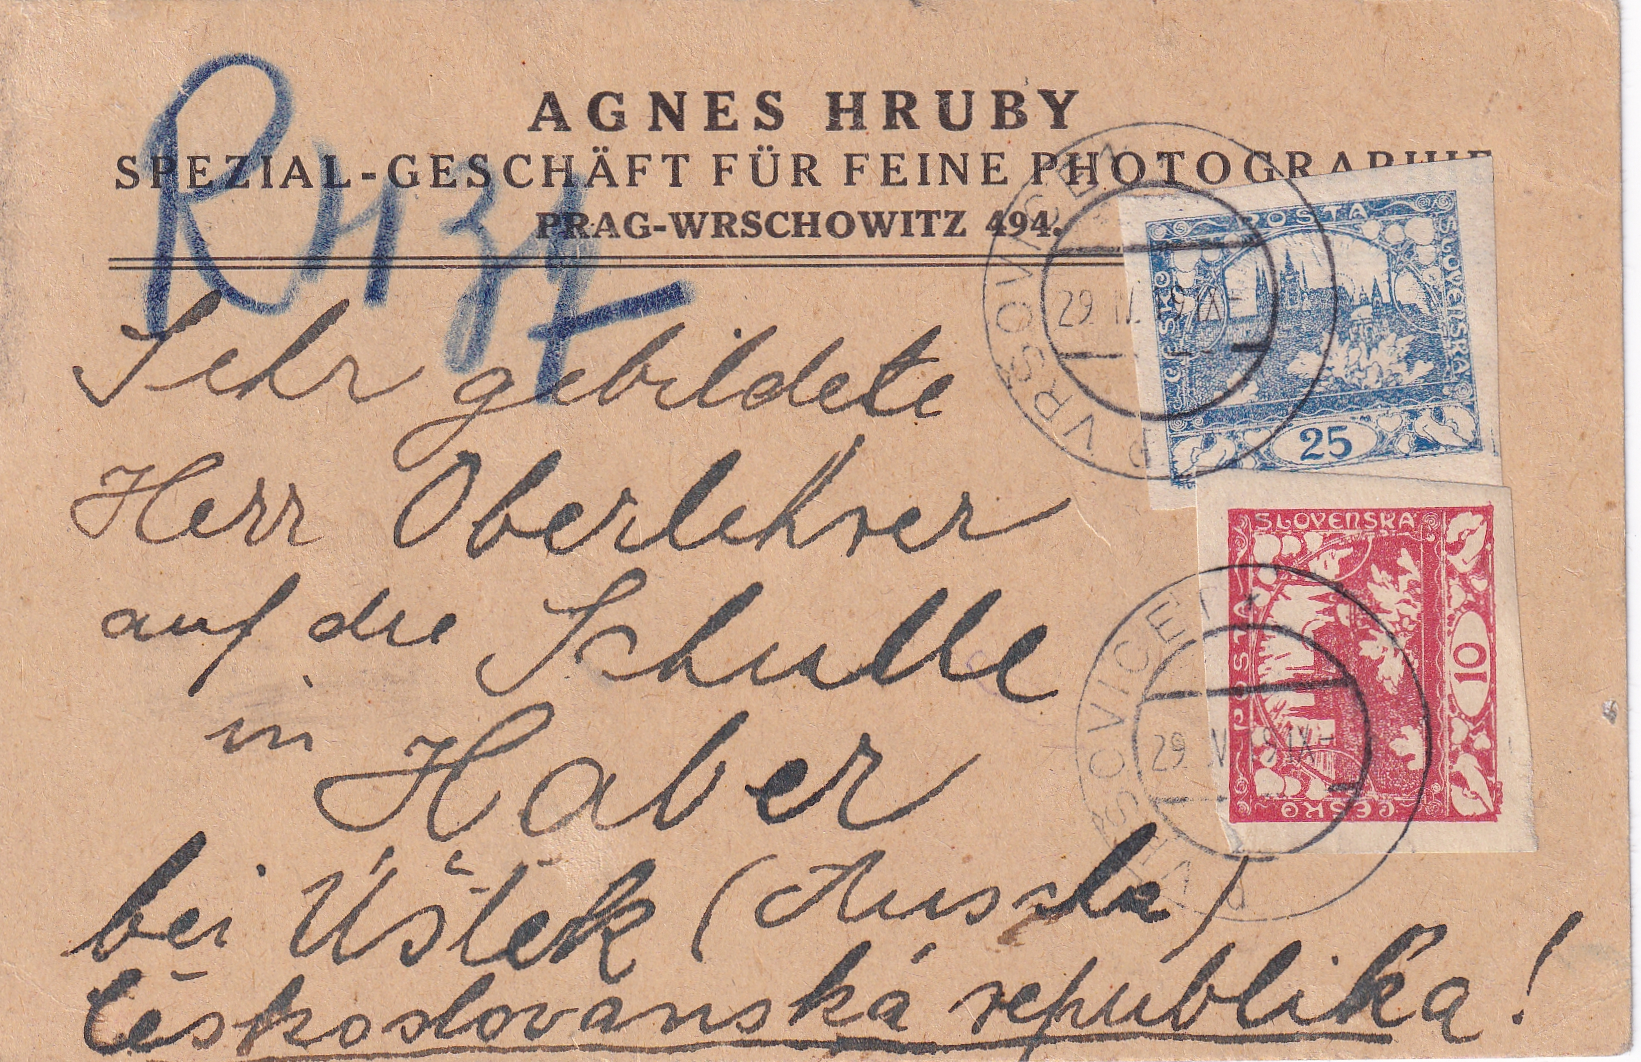 AGNES HRUBY
SPEZIAL-GESCHÄFT FÜR FEINE PHOTOGRAPHIE
PRAG-WRSCHOWITZ 494.
Sehr gebildete
Herr Oberlehrer
auf die Schulle
in Haber
bei Úštěk (Auscha)
Českoslovanská republika!
POSTA
ČESKO
SLOVENSKÁ
25
SLOVENSKÁ
POSTA
ČESKO
10
VRŠOVICE
29
VRŠOVICE
29